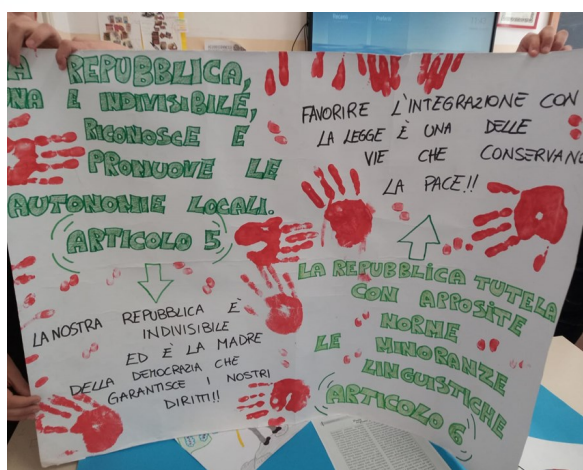 A REPUBBLICA,
NA E INDIVISIBILE,
RICONOSCE E
PROMUOVE LE
AUTONOMIE LOCALI.
ARTICOLO 5
LA NOSTRA REPUBBLICA È
INDIVISIBILE
ED È LA MADRE
DELLA DEMOCRAZIA CHE
GARANTISCE I NOSTRI
DIRITTI!!
FAVORIRE L'INTEGRAZIONE CON
LA LEGGE È UNA DELLE
VIE CHE CONSERVANO
LA PACE!!
LA REPUBBLICA TUTELA
CON APPOSITE
NORME
LE MINORANZE
LINGUISTICHE
ARTICOLO 6